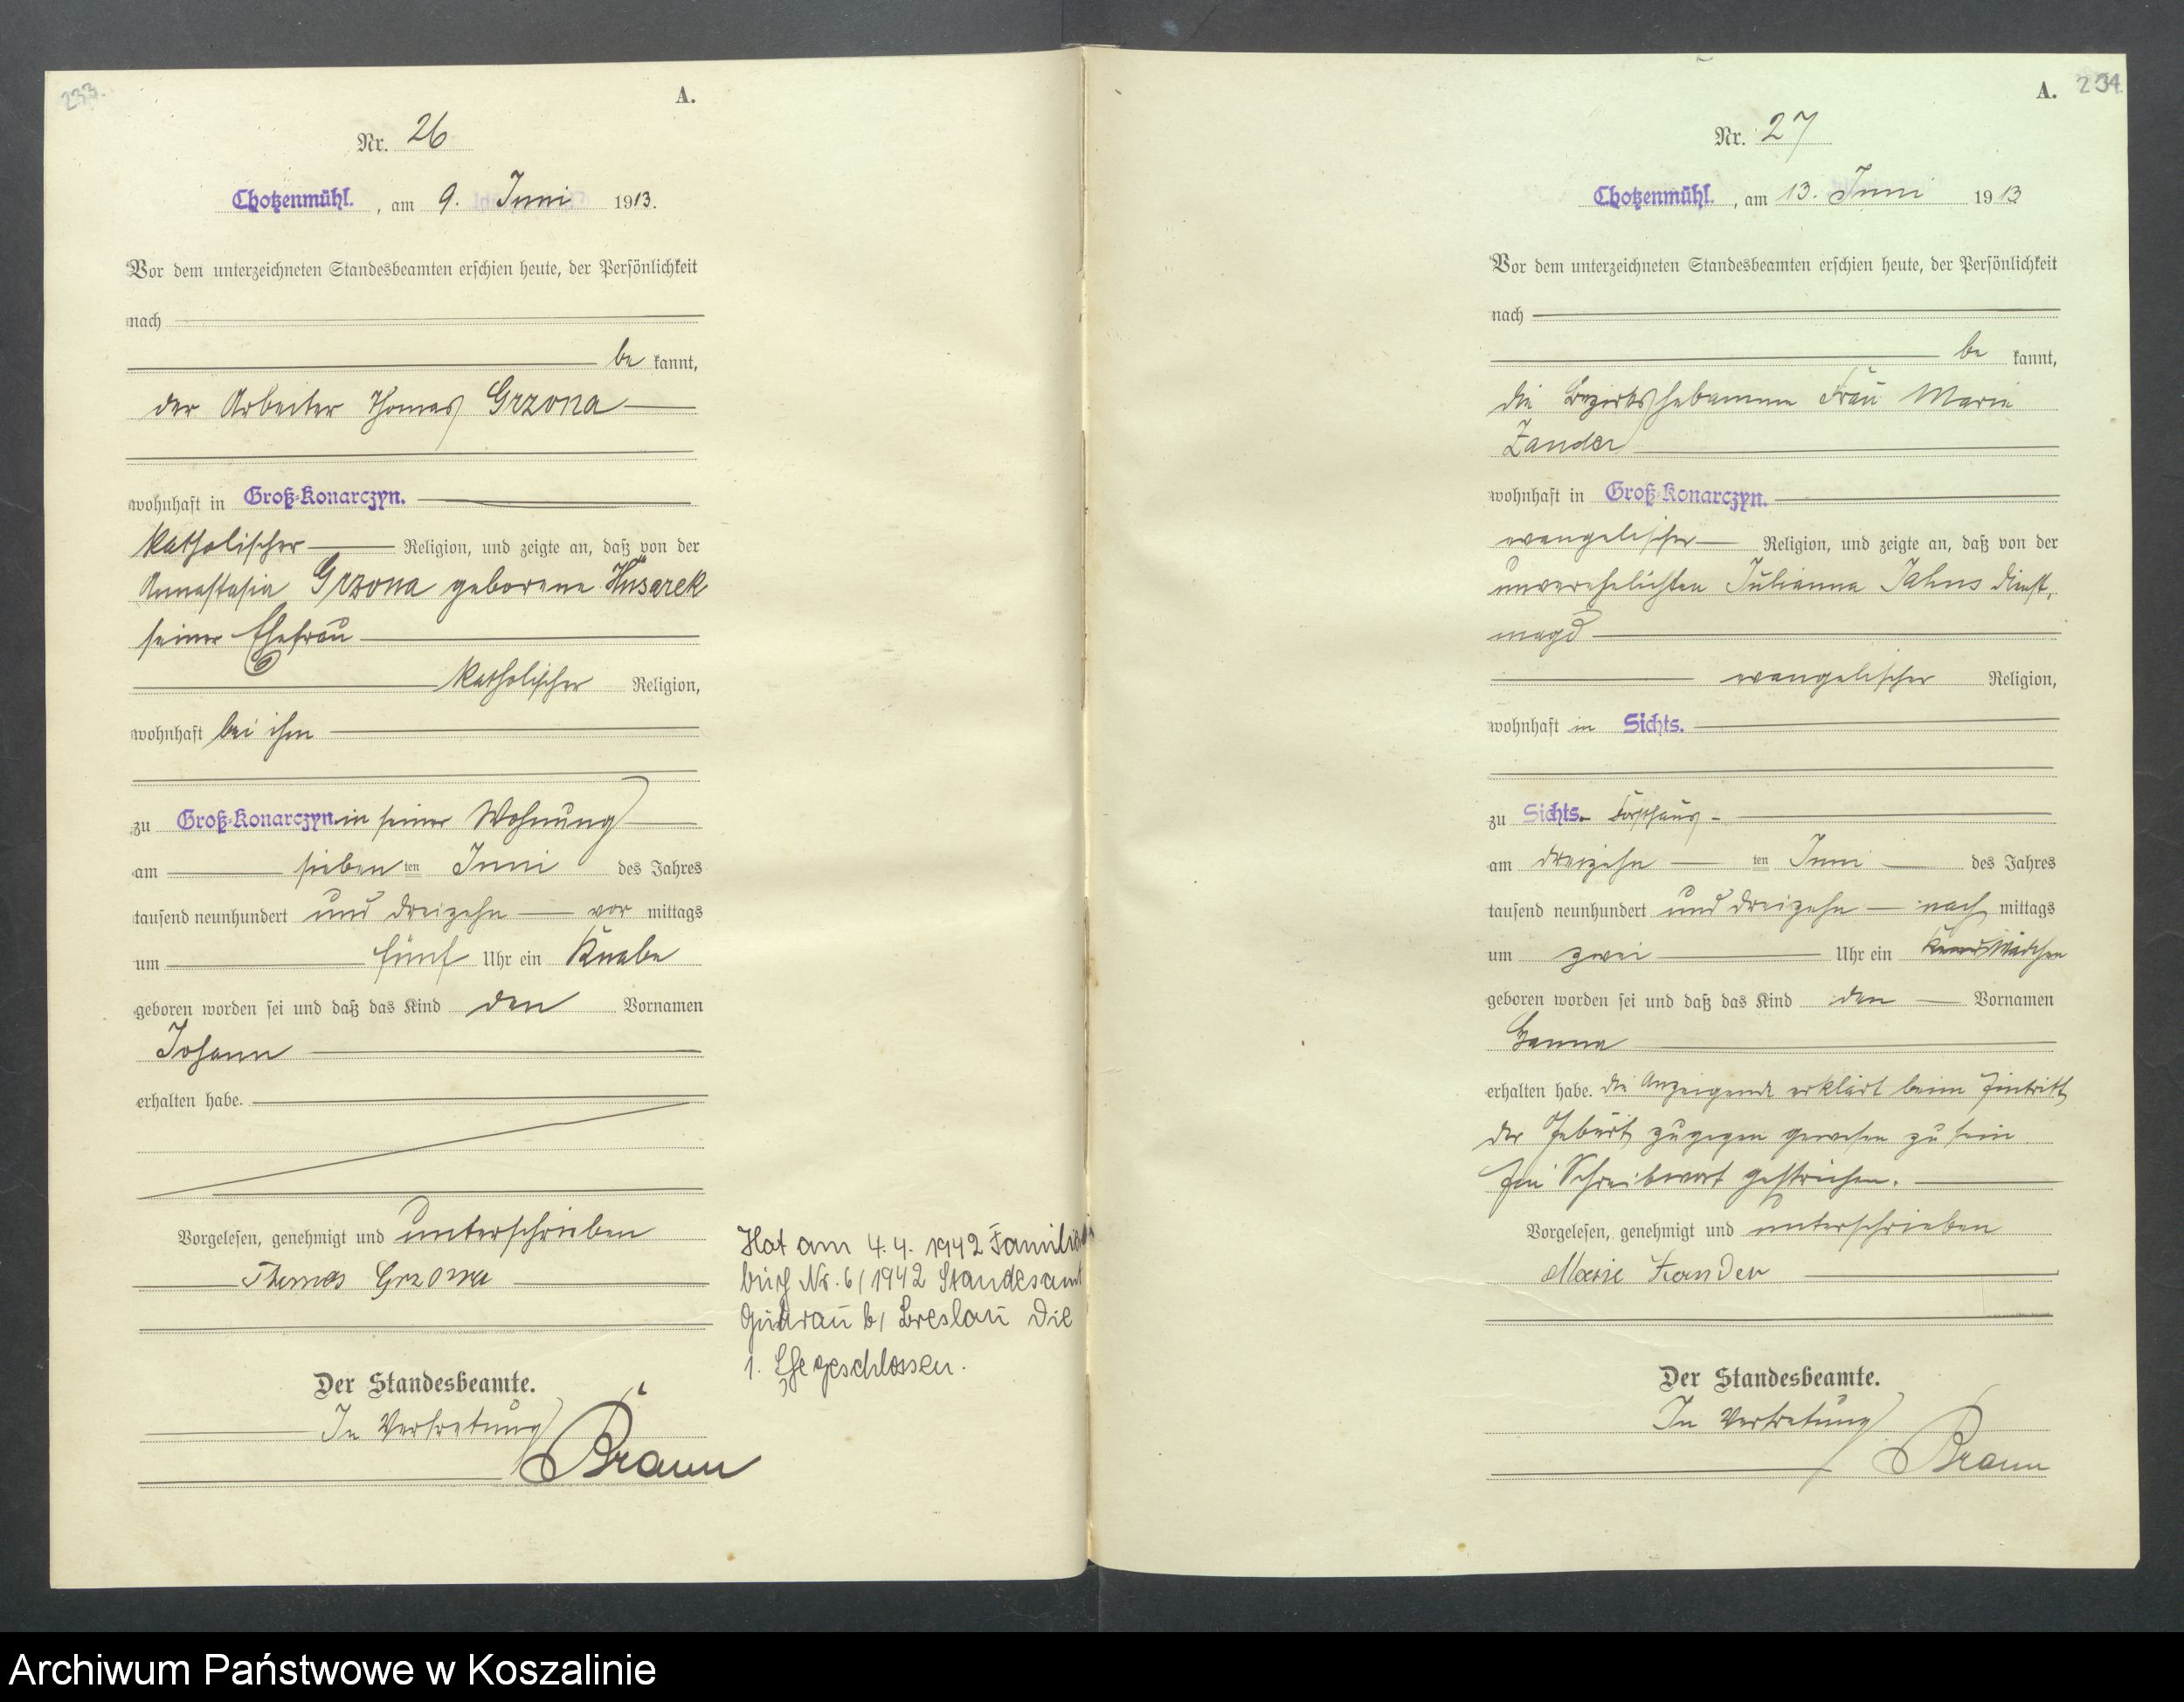 233.
A.
Nr. 26
Chotzenmühl. , am 9. Juni 1913.
Vor dem unterzeichneten Standesbeamten erschien heute, der Persönlichkeit
nach
be kannt,
der Arbeiter Thomas Grzona
wohnhaft in Groß-Konarczyn.
katholischer Religion, und zeigte an, daß von der
Annastasia Grzona geborene Husarek
seiner Ehefrau
katholischer Religion,
wohnhaft bei ihm
zu Groß-Konarczyn. in seiner Wohnung
am sieben ten Juni des Jahres
tausend neunhundert und dreizehn vor mittags
um fünf Uhr ein Knabe
geboren worden sei und daß das Kind den Vornamen
Johann
erhalten habe.
Vorgelesen, genehmigt und unterschrieben
Thomas Grzona
Der Standesbeamte.
In Vertretung
Braun
Hat am 4.4. 1942 Familien
buch Nr. 6/1942 Standesamt
b/ Breslau die
1. Ehe geschlossen.
A. 234.
Nr. 27
Chotzenmühl. , am 13. Juni 1913
Vor dem unterzeichneten Standesbeamten erschien heute, der Persönlichkeit
nach
be kannt,
die Bezirkshebamme Frau Marie
Zander
wohnhaft in Groß-Konarczyn.
evangelischer Religion, und zeigte an, daß von der
unverehelichten Julianna Jahns Dienst,
magd
evangelischer Religion,
wohnhaft in Sichts.
zu Sichts. Forsthaus -
am dreizehn ten Juni des Jahres
tausend neunhundert und dreizehn nach mittags
um zwei Uhr ein Mädchen
geboren worden sei und daß das Kind den Vornamen
erhalten habe. Die Anzeigende erklärt beim Eintritt
der Geburt zugegen gewesen zu sein.
Ein Schreibwort gestrichen.
Vorgelesen, genehmigt und unterschrieben
Marie Zander
Der Standesbeamte.
In Vertretung
Braun
Archiwum Państwowe w Koszalinie